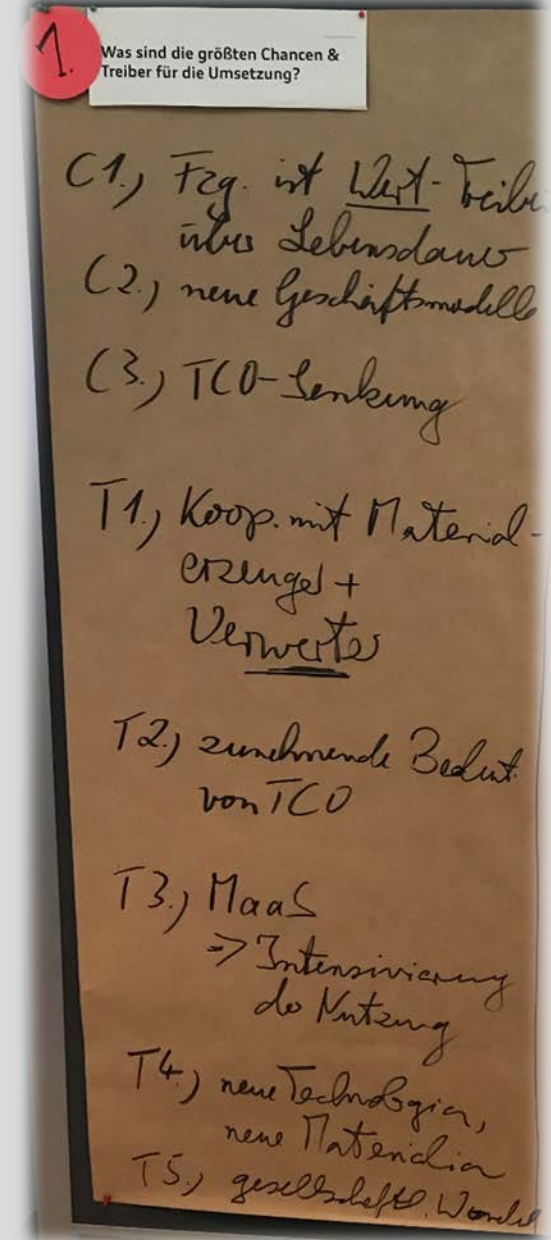 1.
Was sind die größten Chancen &
Treiber für die Umsetzung?
C1.) Fzg. ist Wert-Treiber
über Lebensdauer
C2.) neue Geschäftsmodelle
C3.) TCO-Senkung
T1.) Koop. mit Material-
erzeuger +
Verwerter
T2.) zunehmende Bedeut.
von TCO
T3.) MaaS
=> Intensivierung
der Nutzung
T4.) neue Technologien,
neue Materialien
T5.) gesellschaftl. Wandel